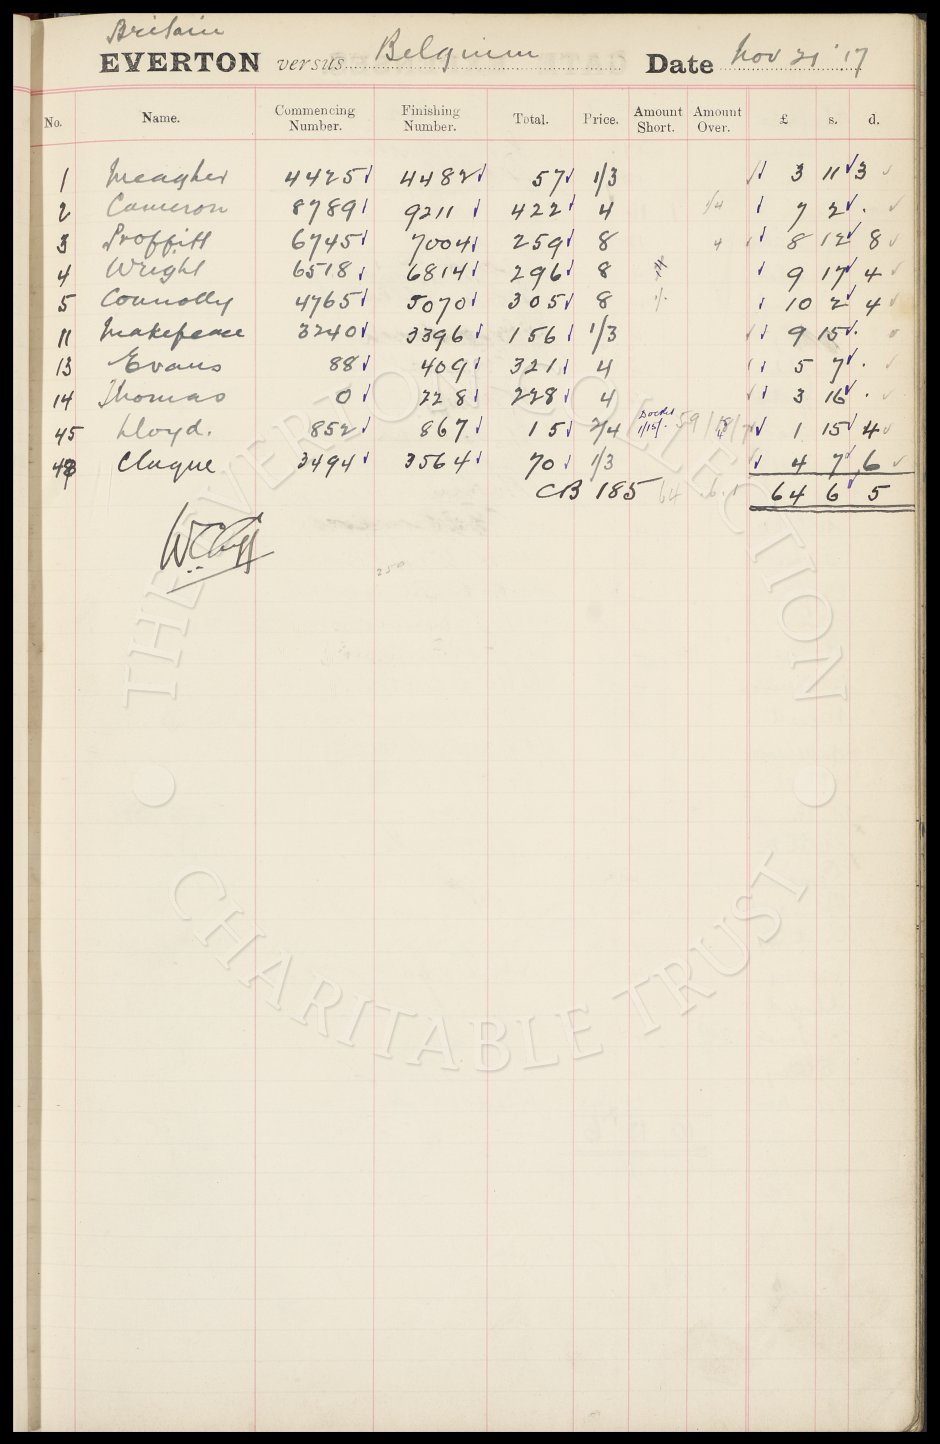 Britain
EVERTON versus Belgium Date Nov 21 '17
No. Name. Commencing Number. Finishing Number. Total. Price. Amount Short. Amount Over. £ s. d.
1 Meagher 4425 4482 57 1/3 3 11 3
2 Cameron 8789 9211 422 4 1/4 7 2 .
3 Proffitt 6745 7004 259 8 4 8 12 8
4 Wright 6518 6814 296 8 9 17 4
5 Connolly 4765 5070 305 8 1/- 10 2 4
11 Makepeace 3240 3396 156 1/3 9 15 .
13 Evans 88 409 321 4 5 7 .
14 Thomas 0 228 228 4 3 16 .
45 Lloyd. 852 867 15 2/4 1/15/- 59/18/ 1 15 4
48 Clague 3494 3564 70 1/3 4 7 6
CB 185 64 6 64 6 5
250
THE EVERTON COLLECTION
CHARITABLE TRUST